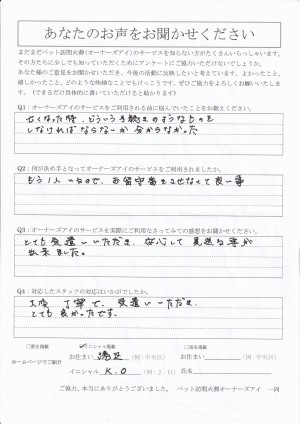 あなたのお声をお聞かせください
まだまだペット訪問火葬(オーナーズアイ)のサービスを知らない方がたくさんいらっしゃいます。
その方たちに少しでも知っていただくためにアンケートにご協力いただけないでしょうか。
あなた様のご意見をお聞かせいただき、今後の活動に反映したいと考えています。よかったこと、
嬉しかったこと、どのような些細なことでもけっこうです。ぜひご協力をよろしくお願いいたしま
す。(できるだけ具体的に書いていただけると助かります)
Q1：オーナーズアイのサービスをご利用される前に悩んでいたことをお教えください。
亡くなった時、どういう手続きのようなものを
しなければならないか分からなかった
Q2：何が決め手となってオーナーズアイのサービスをご利用されましたか。
もう1人いるので、お留守番をさせなくて良い事
Q3：オーナーズアイのサービスを実際にご利用なさってみての感想をお聞かせください。
とても気遣いいただき、安心して見送る事が
出来ました。
Q4：対応したスタッフの対応はいかがでしたか。
大変丁寧で、気遣いいただき
とても良かったです。
□匿名掲載 ☑イニシャル掲載 □実名掲載
ホームページでご紹介
お住まい 港区 (例：中央区) お住まい (例：中央区)
イニシャル K.O (例：J.H) 氏名
ご協力、本当にありがとうございました。 ペット訪問火葬オーナーズアイ 一同